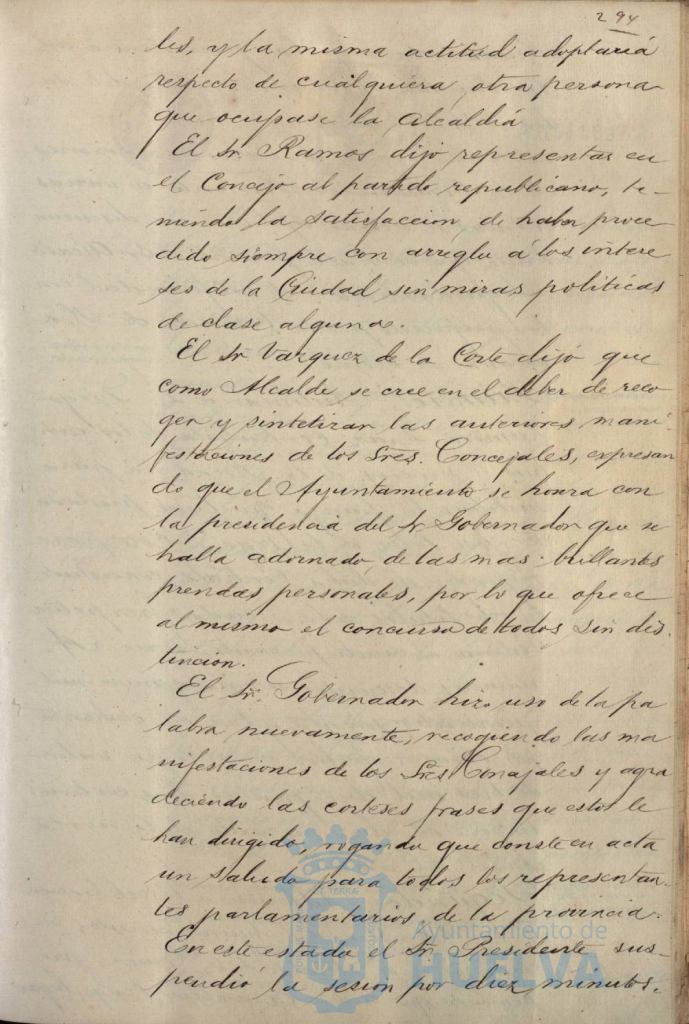 294
les, y la misma actitud adoptaria
respecto de cualquiera otra persona
que ocupase la Alcaldia
El Sr. Ramos dijo representar en
el Concejo al partido republicano, te-
niendo la satisfaccion de haber proce
dido siempre con arreglo á los intere
ses de la Ciudad sin miras politicas
de clase alguna.
El Sr Vazquez de la Corte dijo que
como Alcalde se cree en el deber de reco
ger y sintetizar las anteriores mani-
festaciones de los Sres. Concejales, expresan
do que el Ayuntamiento se honra con
la presidencia del Sr Gobernador que se
halla adornado, de las mas brillantes
prendas personales, por lo que ofrece
al mismo el concurso de todos, sin dis-
tincion.
El Sr. Gobernador hizo uso de la pa
labra nuevamente, recogiendo las ma
nifestaciones de los Sres Concejales y agra
deciendo las corteses frases que estos le
han dirigido, rogando que conste en acta
un saludo para todos los representan-
tes parlamentarios de la provincia.
En este estado el Sr. Presidente sus-
pendió la sesion por diez minutos.
Ayuntamiento de
HUELVA